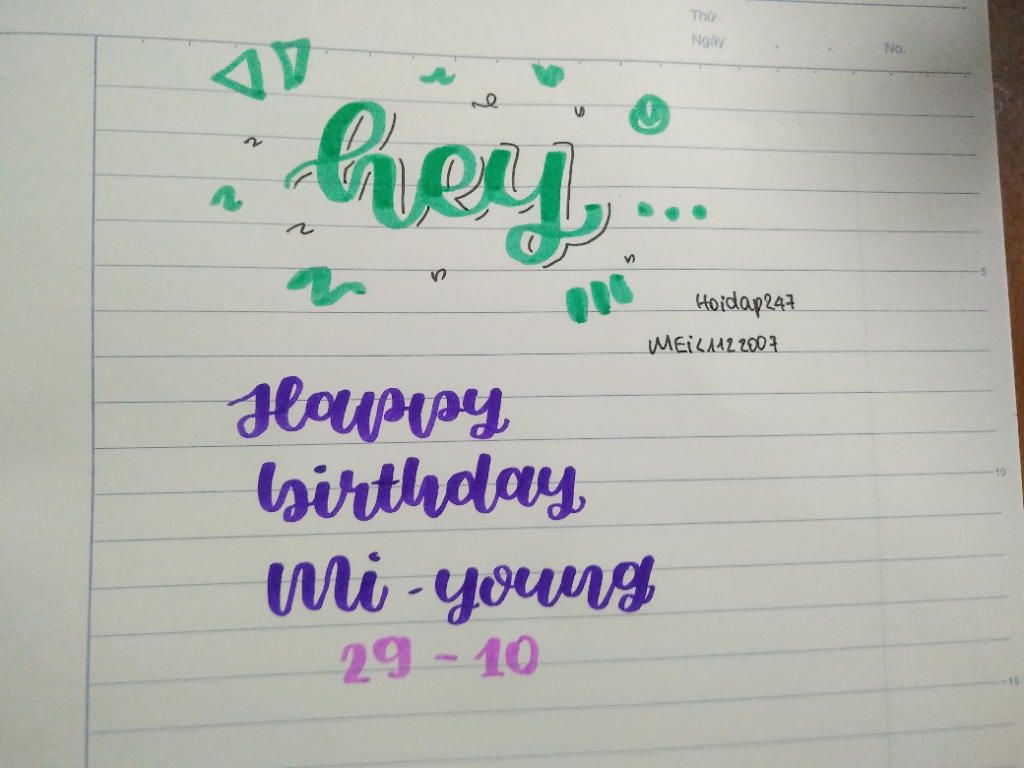 Thứ
Ngày
No.
hey...
5
Hoidap247
MEi21122007
Happy
birthday
10
Mi-young
29-10
15